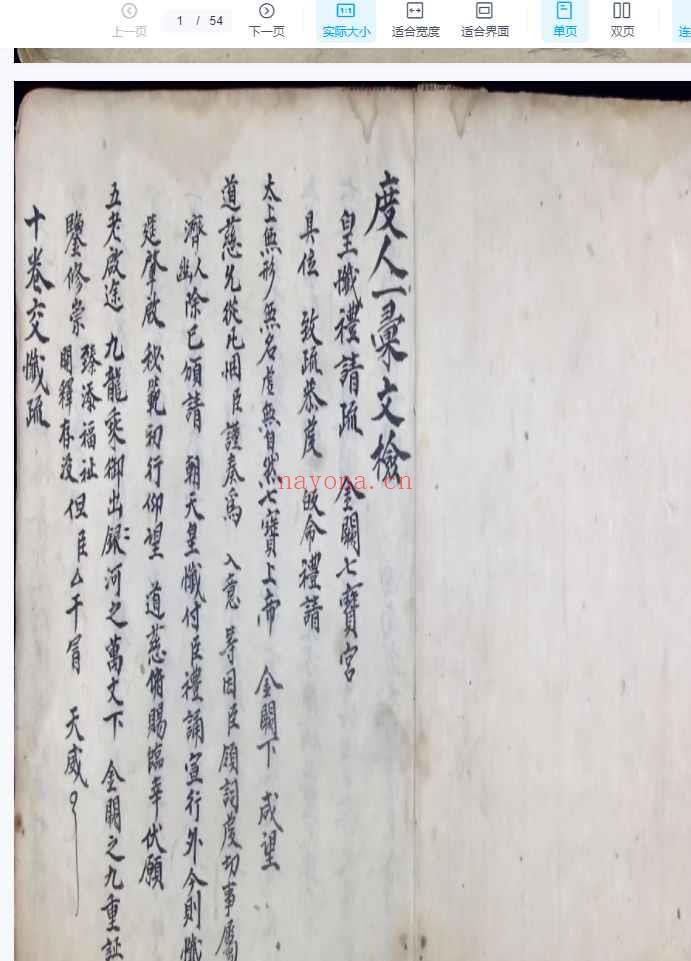 上一页
1 / 54
下一页
实际大小
适合宽度
适合界面
单页
双页
连
度人一彙文檢
皇懺禮請疏 金闕七寶宮
具位 致疏恭虔 皈命禮請
太上無形無名虛無自然七寶上帝 金闕下 咸望
道慈允從凡悃臣謹奏爲 入意 等因臣領詞虔切事屬
濟人幽除已頒請 朝天皇懺付臣禮誦宣行外今則懺
筵肇啟 秘範初行仰望 道慈俯賜臨幸伏願
五老啟途 九龍乘御出銀河之萬丈下 金闕之九重証
鑒修崇 臻添福祉 開釋存没 但臣厶干冒 天威
十卷交懺疏
nayona.cn